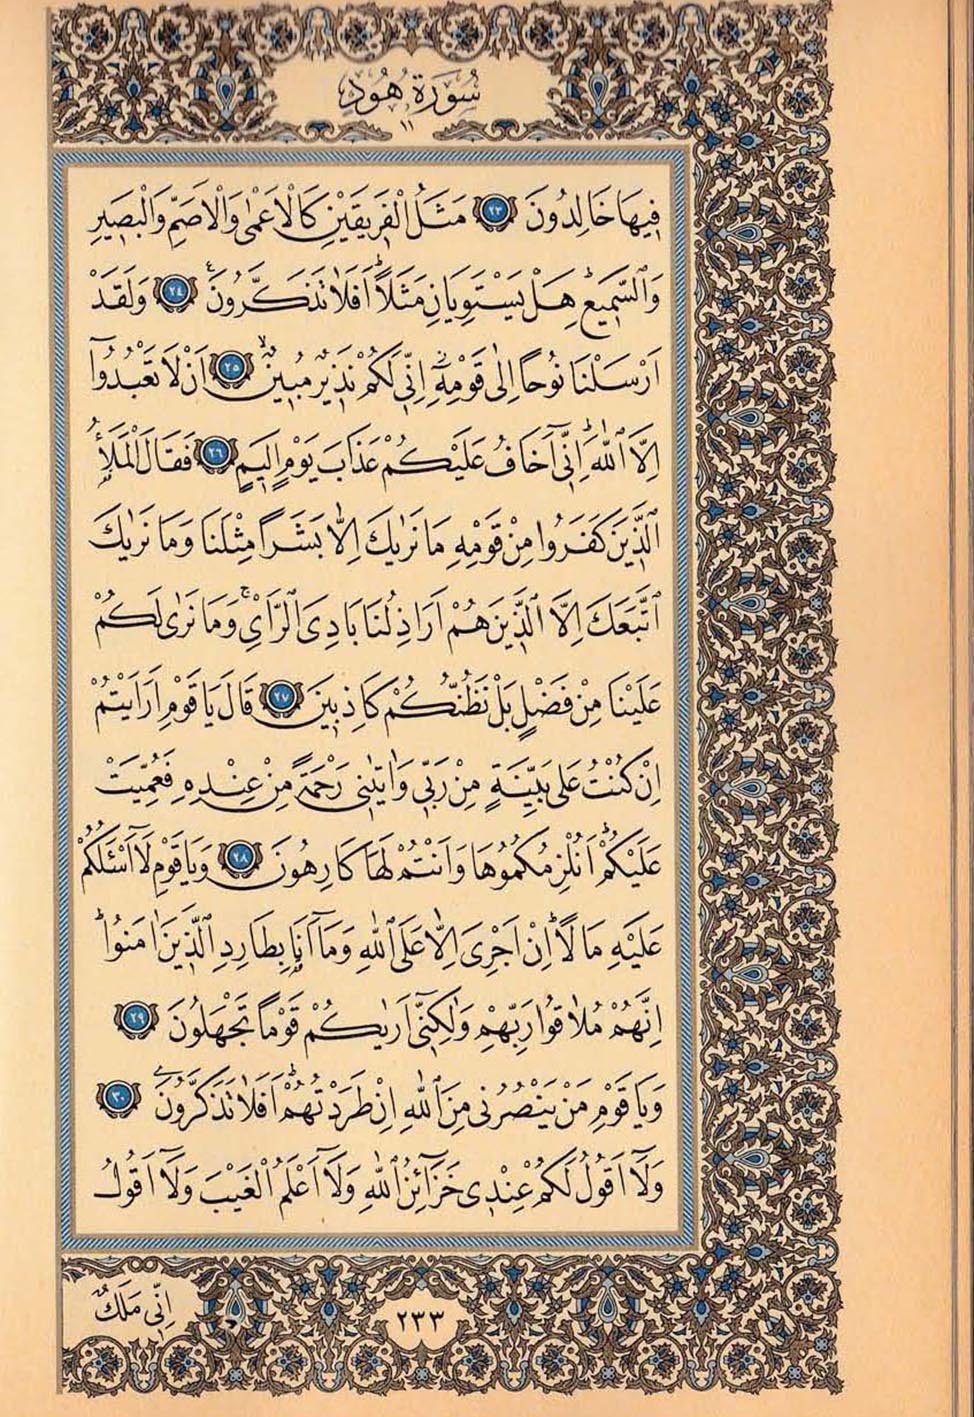 سُورَةُ هُودٍ
١١
فِيهَا خَالِدُونَ ٢٣ مَثَلُ الْفَرِيقَيْنِ كَالْاَعْمٰى وَالْاَصَمِّ وَالْبَصِيرِ
وَالسَّمِيعِۜ هَلْ يَسْتَوِيَانِ مَثَلًاۜ اَفَلَا تَذَكَّرُونَ۟ ٢٤ وَلَقَدْ
اَرْسَلْنَا نُوحًا اِلٰى قَوْمِهٖٓۘ اِنّٖي لَكُمْ نَذٖيرٌ مُبٖينٌۙ ٢٥ اَنْ لَا تَعْبُدُٓوا
اِلَّا اللّٰهَۜ اِنّٖٓي اَخَافُ عَلَيْكُمْ عَذَابَ يَوْمٍ اَلٖيمٍ ٢٦ فَقَالَ الْمَلَأُ
الَّذٖينَ كَفَرُوا مِنْ قَوْمِهٖ مَا نَرٰيكَ اِلَّا بَشَرًا مِثْلَنَا وَمَا نَرٰيكَ
اتَّبَعَكَ اِلَّا الَّذٖينَ هُمْ اَرَاذِلُنَا بَادِيَ الرَّأْيِۚ وَمَا نَرٰى لَكُمْ
عَلَيْنَا مِنْ فَضْلٍ بَلْ نَظُنُّكُمْ كَاذِبٖينَ ٢٧ قَالَ يَا قَوْمِ اَرَاَيْتُمْ
اِنْ كُنْتُ عَلٰى بَيِّنَةٍ مِنْ رَبّٖي وَاٰتٰينٖي رَحْمَةً مِنْ عِنْدِهٖ فَعُمِّيَتْ
عَلَيْكُمْۜ اَنُلْزِمُكُمُوهَا وَاَنْتُمْ لَهَا كَارِهُونَ ٢٨ وَيَا قَوْمِ لَٓا اَسْـَٔلُكُمْ
عَلَيْهِ مَالًاۜ اِنْ اَجْرِيَ اِلَّا عَلَى اللّٰهِ وَمَٓا اَنَا۬ بِطَارِدِ الَّذٖينَ اٰمَنُواۜ
اِنَّهُمْ مُلَاقُوا رَبِّهِمْ وَلٰكِنّٖٓي اَرٰيكُمْ قَوْمًا تَجْهَلُونَ ٢٩
وَيَا قَوْمِ مَنْ يَنْصُرُنٖي مِنَ اللّٰهِ اِنْ طَرَدْتُهُمْۜ اَفَلَا تَذَكَّرُونَ ٣٠
وَلَٓا اَقُولُ لَكُمْ عِنْدٖي خَزَٓائِنُ اللّٰهِ وَلَٓا اَعْلَمُ الْغَيْبَ وَلَٓا اَقُولُ
اِنّٖي مَلَكٌ
٢٣٣